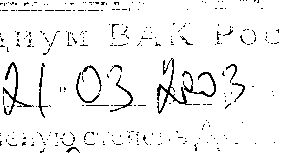 диум ВАК Рос
21 03 2003
ную степень Д